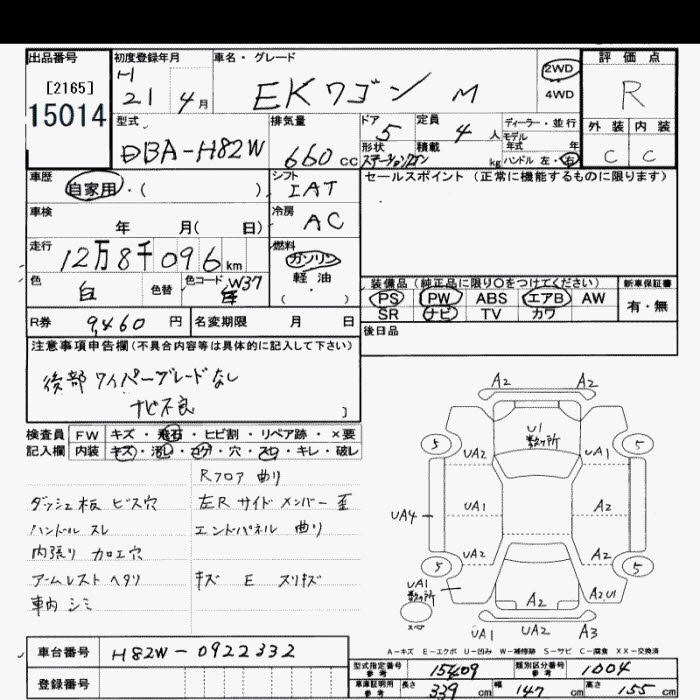 出品番号
[2165]
15014
初度登録年月
H
21 4月
車名・グレード
EKワゴン M
2WD
4WD
評価点
R
外装 内装
C C
型式
DBA-H82W
排気量
660cc
ドア
5
定員
4人
形状
ステーションワゴン
積載
kg
ディーラー・並行
モデル
年式 年
ハンドル 左・右
車歴
自家用・( )
シフト
IAT
セールスポイント (正常に機能するものに限ります)
車検
年 月( 日)
冷房
AC
走行
12万8千096km
燃料
ガソリン
軽油
( )
色
白
色替
色コード W37
装備品 (純正品に限り○をつけてください)
PS PW ABS エアB AW
SR ナビ TV カワ
新車保証書
有・無
R券 9,460円
名変期限 月 日
後日品
注意事項申告欄(不具合内容等は具体的に記入して下さい)
後部ワイパーブレードなし
ナビ不良
検査員 FW キズ・飛石・ヒビ割・リペア跡・×要
記入欄 内装 キズ・汚レ・コゲ・穴・スレ・キレ・破レ
Rフロア 曲り
ダッシュ板 ビス穴
左Rサイドメンバー 歪
ハンドル スレ
エンドパネル 曲り
内張り カロエ穴
アームレスト ヘタリ
キズ E スリキズ
車内 シミ
A2 A2
U1
数ヶ所
5 5
UA2 UA1
UA4 UA1 A2
UA2 A2
5 5
UA1
数ヶ所
A2 A2 U1
UA1 UA2 A3
A-キズ E-エクボ U-凹み W-補修跡 S-サビ C-腐食 XX-交換済
車台番号 H82W-0922332
登録番号
型式指定番号
参考
15409
類別区分番号
参考
1004
車庫証明用
参考
長さ 339cm 幅 147cm 高さ 155cm